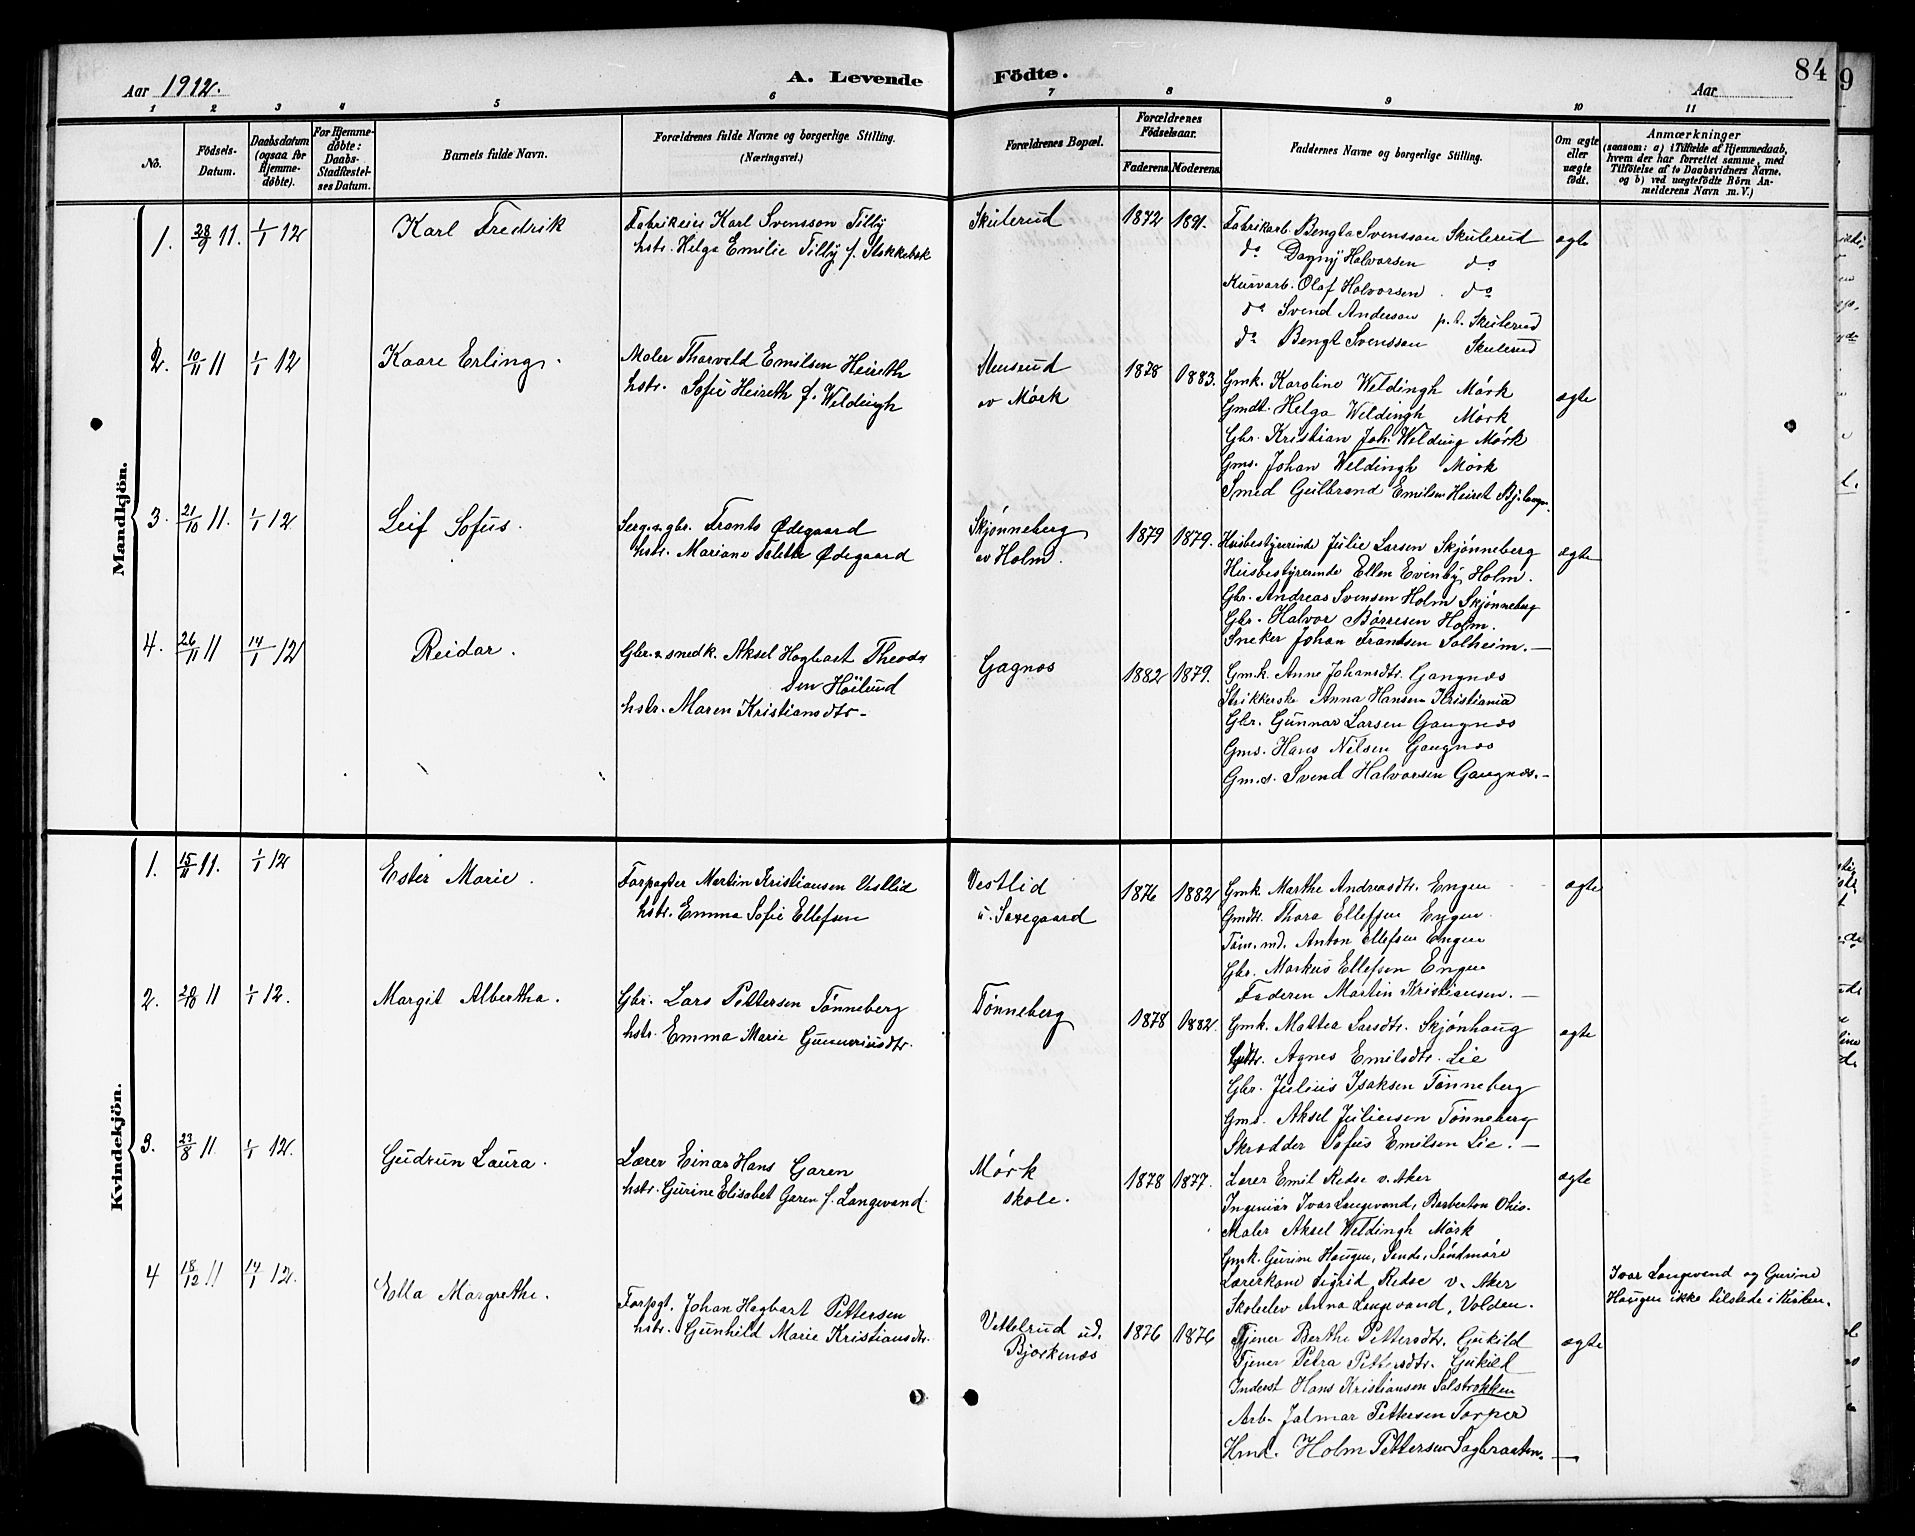 Aar 1912.
A. Levende Födte.
Aar
84
1 2 3 4 5 6 7 8 9 10 11
No.
Födsels-Datum.
Daabsdatum (ogsaa for Hjemme-döbte).
For Hjemme-döbte: Daabs-Stadfæstel-ses Datum.
Barnets fulde Navn.
Forældrenes fulde Navne og borgerlige Stilling. (Næringsvei.)
Forældrenes Bopæl.
Forældrenes Födselsaar.
Faderens. Moderens.
Faddernes Navne og borgerlige Stilling.
Om ægte eller uægte födt.
Anmærkninger (saasom: a) i Tilfælde af Hjemmedaab, hvem der har forrettet samme, med Tilföielse af to Daabsvidners Navne, og b) ved uægtefödte Börn An-melderens Navn m. V.)
Mandkjön.
1. 28/9 11. 1/1 12 Karl Fredrik
Fabrikeier Karl Svensson Tilby
hstr. Helga Emilie Tilby f. Stokkebæk
Skulerud 1872 1891.
Fabrikarb. Bengta Svensson Skulerud
do Dagny Halvorsen do
Kurvarb. Olaf Halvorsen do
do Svend Anderson p.t. Skulerud
do Bengt Svensson Skulerud
ægte
2. 10/11 11 1/1 12 Kaare Erling.
Maler Thorvald Emilsen Heireth
hstr. Sofie Heireth f. Weldingh
av Mørk 1878 1883.
Gmk. Karoline Weldingh Mørk
Gmdt. Helga Weldingh Mørk
Gbr. Kristian Joh. Welding Mørk
Gms. Johan Weldingh Mørk
Smed Gulbrand Emilsen Heiret
ægte
3. 21/10 11. 1/1 12 Leif Sofus.
Serg. & gbr. Frants Ødegaard
hstr. Mariane Ødegaard
Skjønneberg
av Holm. 1879 1879.
Husbestyrerinde Julie Larsen Skjønneberg
Husbestyrerinde Ellen Evenby Holm.
Gbr. Andreas Svensen Holm Skjønneberg
Gbr. Halvor Børresen Holm.
Sneker Johan Frantsen Solheim.—
ægte
4. 26/11 11 14/1 12 Reidar.
Gbr. & snedk. Aksel Hagbart Theodor
sen Höilund
hstr. Maren Kristiansdtr-
Gagnæs 1882 1879.
Gmk. Anne Johansdtr. Gangnæs
Strikkerske Anna Hansen Kristiania
Gbr. Gunnar Larsen Gangnæs
Gms. Hans Nilsen Gangnæs
Gms. Svend Halvorsen Gangnæs.-
Kvindekjön.
1. 15/11 11. 1/1 12 Ester Marie.
Forpagter Martin Kristiansen Vestlid
hstr. Emma Sofie Ellefsen
Vestlid
u. Saxegaard 1876 1882
Gmk. Marthe Andreasdtr. Engen
Gmdtr. Thora Ellefsen Engen.
Töm.md. Anton Ellefsen Engen
Gbr. Markus Ellefsen Engen
Faderen Martin Kristiansen.—
ægte
2. 11 1/1 12. Margit Albertha.
Gbr. Lars Pettersen Tønneberg
hstr. Emma Marie Gunneriusdtr.
Tønneberg 1878 1882.
Gmk. Mathea Larsdtr. Skjønhaug
Agnes Emilsdtr. Lie
Gbr. Julius Isaksen Tønneberg
Gms. Aksel Juliussen Tønneberg
Skrædder Sofus Emilsen Lie.—
ægte
3. 23/8 11 1/1 12. Gudrun Laura.
Lærer Einar Hans Garen
hstr. Gurine Elisabet Garen f. Langevand.
Mørk
skole. 1878 1877.
Lærer Emil Redse v. Aker
Ingeniör Ivar Langevand, Barberton Ohio.
Maler Aksel Weldingh Mørk
Gmk. Gurine Haugen, Sande, Söndmöre
Lærerkone Sigrid Redse v. Aker
Skoleelev Anna Langevand, Volden.
ægte
Ivar Langevand og Gurine
Haugen ikke tilstede i Kirken.
4 18/12 11 14/1 12. Ella Margrethe.
Forpgt. Johan Hagbart Pettersen
hstr. Gunhild Marie Kristiansdtr.
Vettelrud ud.
Bjørkenæs 1876 1876
Tjener Berthe Pettersdtr. Gukild
Tjener Petra Pettersdtr. Gukild
Inderst Hans Kristiansen Salstrøkken
Arb. Jalmar Pettersen Torper
Hmd. Holm Pettersen Sagbraaten.—
ægte